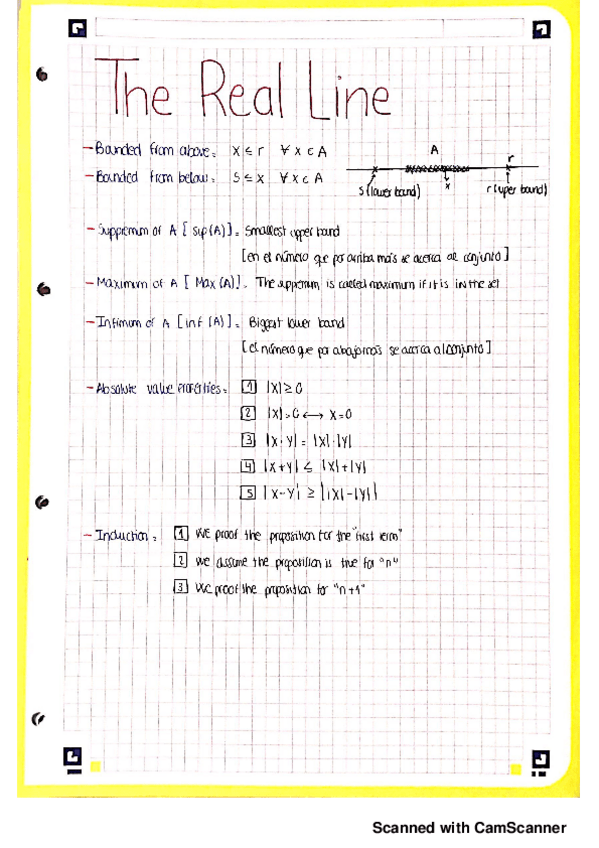 The Real Line
- Bounded from above: x ≤ r ∀ x ∈ A
- Bounded from below: s ≤ x ∀ x ∈ A
A
r
x
s (lower band)
r (uper band)
- Suppremum of A [ sup (A)]: Smallest upper band
[en el número que por arriba más se acerca al conjunto]
- Maximum of A [ Max (A)]: The suppremum is called maximum if it is in the set
- Infimum of A [inf (A)]: Biggest lower band
[el número que por abajo más se acerca al conjunto]
- Absolute value properties: 1 |x| ≥ 0
2 |x| = 0 ⟷ x = 0
3 |x · y| = |x| · |y|
4 |x + y| ≤ |x| + |y|
5 |x - y| ≥ ||x| - |y||
- Induction: 1 We proof the proposition for the "first term"
2 we assume the proposition is true for "n"
3 We proof the proposition for "n+1"
Scanned with CamScanner